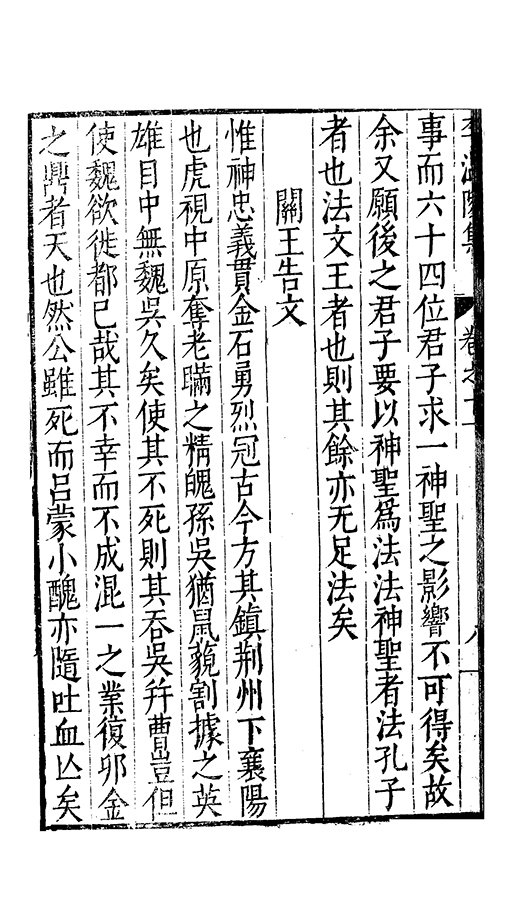 集
卷之十一
八
事而六十四位君子求一神聖之影響不可得矣故
余又願後之君子要以神聖爲法法神聖者法孔子
者也法文王者也則其餘亦无足法矣
關王告文
惟神忠義貫金石勇烈冠古今方其鎮荆州下襄陽
也虎視中原奪老瞞之精魄孫吳猶鼠藐割據之英
雄目中無魏吳久矣使其不死則其吞吳幷曹豈但
使魏欲徙都已哉其不幸而不成混一之業復卯金
之鼎者天也然公雖死而呂蒙小醜亦隨吐血亾矣